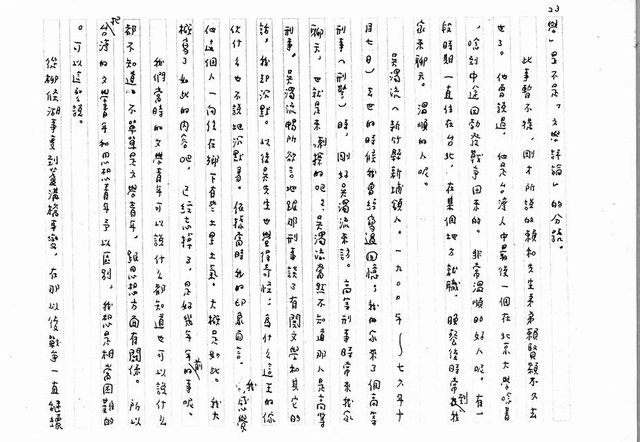 23
學」是不是「文學評論」的分誌。
此事暫不提，剛才所說的賴和先生來弟賴賢穎不久去
世了。他曾說過，他是台灣人中最後一個在北京大學唸書
，唸到中途回勁發戰爭回來的。非常溫順的好人呢。有一
段時期一直住在台北，在某個地方就職，晚餐後時常到我
家來聊天。溫順的人呢。
吳濁流（新竹縣新埔鎮人。一九〇〇年～七六年十
月七日）去世的時候我曾給寫過回憶；我的家來了個高等
刑事（刑警）時，剛好吳濁流來訪。高等刑事時常來我家
聊天，也就是來刺探的吧？吳濁流當然不知道那人是高等
刑事。吳濁流暢所欲言地跟那刑事談了有關文學和其它的
話，我却沉默。以後吳先生也覺得奇怪；為什么這王的傢
伙什么也不說地沉默着。依據當時我的印象而言，我感覺
他這個人一向住在鄉下有些土里土氣。大概是如此。我大
概寫了如此的內容吧，已經忘掉了，是好幾年前的事呢。
我們當時的文學青年可以說什么都知道也可以說什么
都不知道。不單單是文學青年，跟思想方面有關係。所以
把台灣的文學青年和思想青年予以區別，我想是相當困難的
。可以這么說。
從柳條湖事變到蘆溝橋事變，在那以後戰爭一直繼續